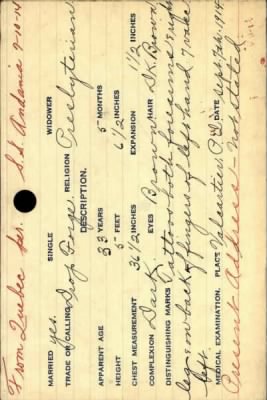 From Quebec per. S.S. Andania 2-10-14
MARRIED yes. SINGLE WIDOWER
TRADE OR CALLING Drop Forge. RELIGION Presbyterian
DESCRIPTION.
APPARENT AGE 33 YEARS 5 MONTHS
HEIGHT 5 FEET 6 1/2 INCHES
CHEST MEASUREMENT 36 1/2 INCHES EXPANSION 1 1/2 INCHES
COMPLEXION Dark EYES Brown HAIR Dk. Brown
DISTINGUISHING MARKS Tattoos both forearms & right
leg & on back of fingers of left hand, 1 vacc
left
MEDICAL EXAMINATION. PLACE Valcartier, P.Q. DATE Sept 5th. 1914
Present Address - Not stated